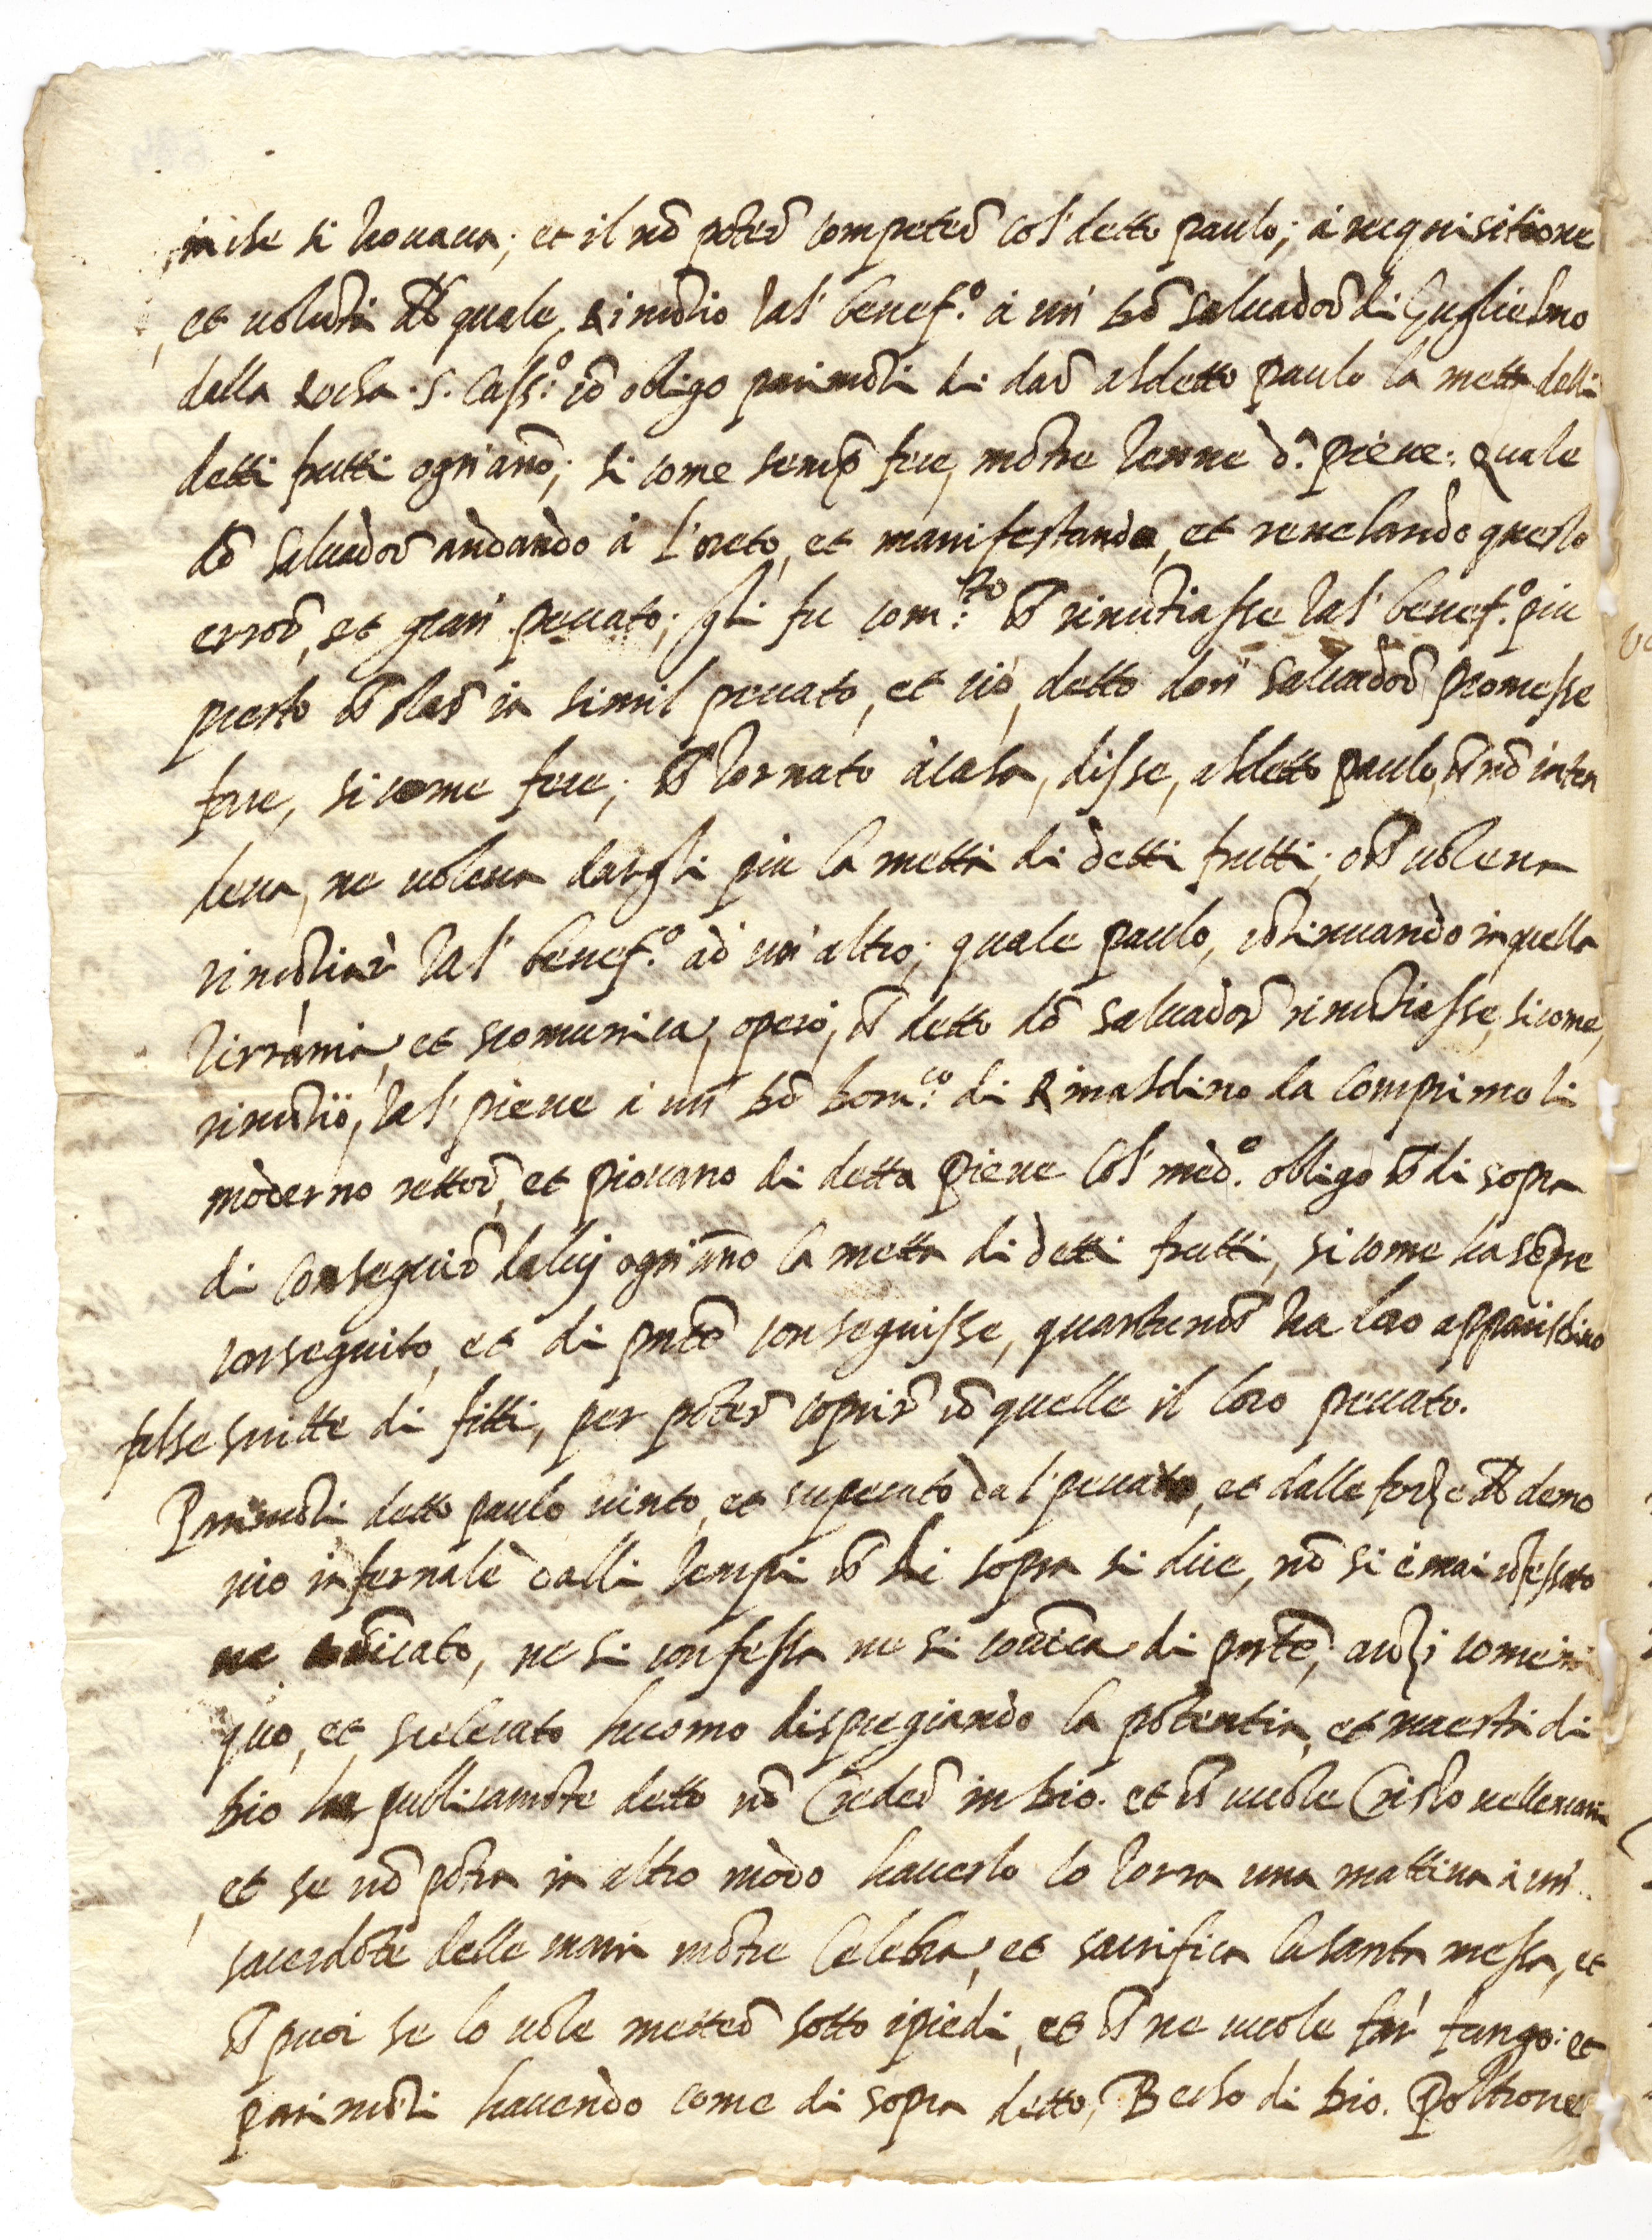 in che si trovava; et il nõ poterẽ competerẽ col' detto paulo; à requisitione
et uolũtà del quale, Rinũtio tal' benef.º à un' Dõ Saluadorẽ di Guglielmo
della Rocha. S. Cass.º cõ obligo parimẽti di darẽ al detto paulo la metta delli
detti frutti ogn'anõ; si come semp̃ fece, mẽtre tenne d.ª pieue: quale
dõ Saluadorẽ andando à l'oreto, et manifestando, et reuelando questo
errorẽ, et gran' peccato; gli fu com.to ch̃ rinũtiasse tal' benef.º piu
presto ch̃ starẽ in simil peccato, et ciò, detto don' Saluadorẽ promesse
fare, si come fece; ch̃ tornato à casa, disse, al detto paulo, ch̃ nõ inten
deua, ne uoleua dargli piu la metta di detti frutti; ch̃ uoleua
rinũtiare tal' benef.º ad un' altro; quale paulo, cõtinuando in quella
tirrania, et scomunica, operò, ch̃ detto dõ Saluadorẽ rinũtiasse, si come,
rinũtiò, tal' pieue à un' Dõ Dom.co di Rinaldino da Comprimoli
moderno rettorẽ, et piouano di detta pieue col' med.º obligo ch̃ di sopra
di conseguirẽ da luj ogn'anno la metta di detti frutti, si come ha sẽpre
conseguito, et di pñtẽ conseguisse, quantunch̃ tra loro apparischino
false scritte di fitti, per poterẽ coprirẽ cõ quelle il loro peccato.
Parimẽti detto paulo uinto, et superato da l' peccato, et dalle forze del demo
nio infernale dalli tempi ch̃ di sopra si dice, nõ si è mai cõfessato
ne cõicato, ne si confessa ne si comica di pñte, anzi come ini
quo, et scelerato huomo dispregiando la potentia, et maestà di
Dio ha publicamẽte detto nõ Crederẽ in Dio. et ch̃ uuole Cristo nelle mani
et se nõ potra in altro modo hauerlo lo torra una mattina à un'
sacerdote delle mani mẽtre Celebra, et sacrifica la santa messa, et
ch̃ puoi se lo uole metterẽ sotto i piedi, et ch̃ ne uuole far' fango: et
parimẽti hauendo come di sopra detto, Becho di Dio. Poltrone